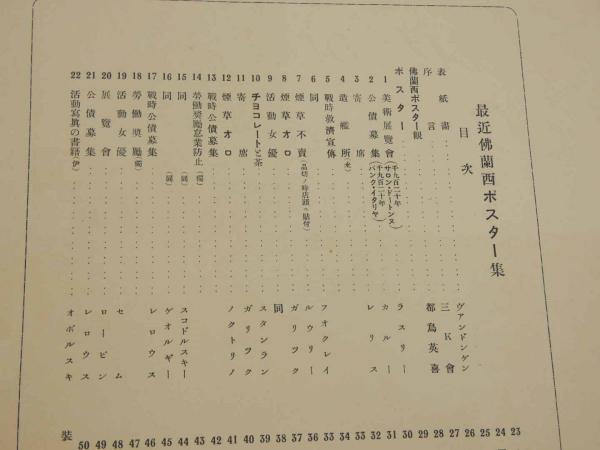 最近佛蘭西ポスター集
目次
表紙畫 ヴアンドンゲン
序言 三K會
佛蘭西ポスター觀 都鳥英喜
ポスター
1 美術展覽會(千九百二十年 サロン・ドートンヌ) ラスリー
2 公債募集(千九百二十年 バンク・イタリヤ) カルー
3 寄席 レリス
4 造艦所(米)
5 戰時救濟宣傳
6 同 フオクレイ
7 煙草不賣(品切ノ時店頭ヘ貼付) ルウリー
8 煙草オロ ガリツク
9 活動女優 同
10 チヨコレートと茶 スタンラン
11 寄席 ガリツク
12 煙草オロ ノクトリノ
13 戰時公債募集
14 勞働奬勵怠業防止(獨)
15 同(國) スコドルスキー
16 同(國) ゲオルギー
17 戰時公債募集 レロウス
18 勞働奬勵(獨)
19 活動女優 セム
20 展覽會 ロービン
21 公債募集 レロウス
22 活動寫眞の書籍(伊) オポルスキ
23
24
25
26
27
28
29
30
31
32
33
34
35
36
37
38
39
40
41
42
43
44
45
46
47
48
49
50
裝